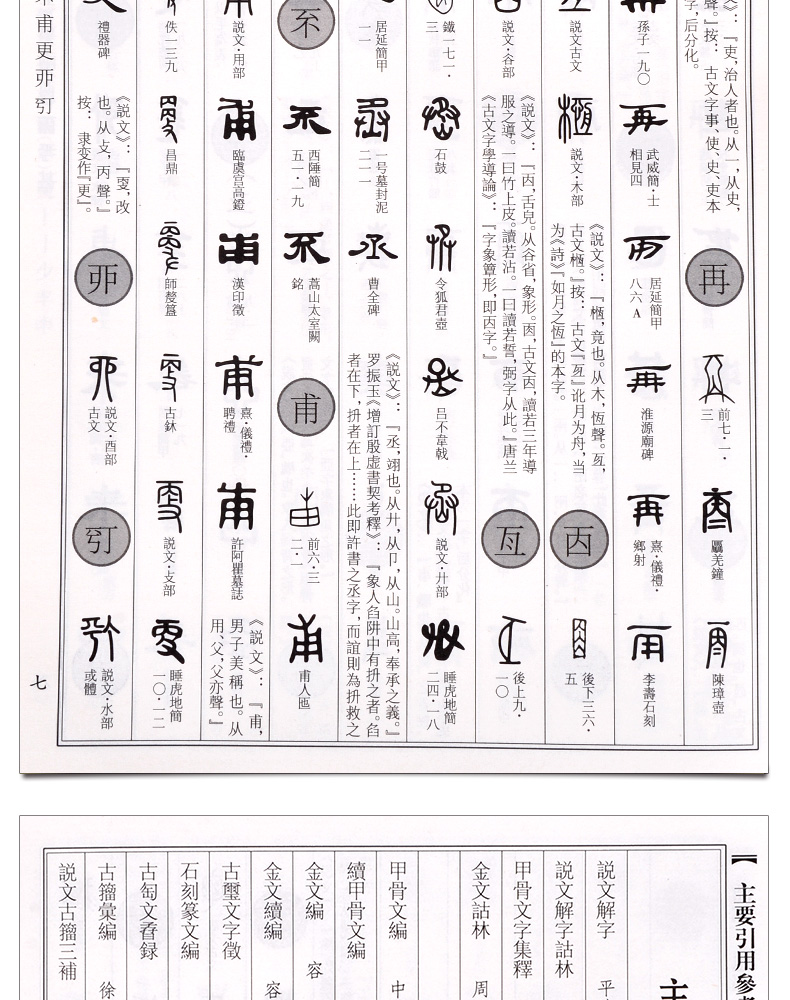 》：『吏，治人者也。从一，从史，
聲。』按：　古文字事、使、史、吏本
字，后分化。
再
前七·一·
三
䲨羌鐘
陳璋壺
孫子一九〇
武威簡·士
相見四
居延簡甲
八六A
淮源廟碑
熹·儀禮·
鄉射
李壽石刻
說文古文
說文·木部
《說文》：『㮓，竟也。从木，恆聲。亙，
古文㮓。』按：　古文『亙』訛月为舟，当
为《詩》『如月之恆』的本字。
㐁
後下三六·
五
說文·谷部
《說文》：『㐁，舌皃。从谷省，象形。㐁，古文㐁，讀若三年導
服之導。一曰竹上皮。讀若沾。一曰讀若誓，弼字从此。』唐兰
《古文字學導論》：『字象簟形，即㐁字。』
亙
後上九·
一〇
鐵一七一·
三
石鼓
令狐君壺
吕不韋戟
說文·廾部
睡虎地簡
二四·一八
居延簡甲
一一
一号墓封泥
二一一
曹全碑
《說文》：『丞，翊也。从廾，从卩，从山。山高，奉承之義。』
罗振玉《增訂殷虛書契考釋》：『象人臽阱中有抍之者。臽
者在下，抍者在上……此即許書之丞字，而誼則為抍救之
㔻
西陲簡
五一·一九
蒿山太室闕
銘
甫
前六·三
二·一
甫人匜
說文·用部
臨虞宫高鐙
漢印徵
熹·儀禮·
聘禮
許阿瞿墓誌
《說文》：『甫，
男子美稱也。从
用、父，父亦聲。』
佚一三九
昌鼎
師嫠簋
古鉥
說文·攴部
睡虎地簡
一〇·一二
禮器碑
《說文》：『㪅，改
也。从攴，丙聲。』
按：　隶变作『更』。
丣
說文·酉部
古文
㱑
說文·水部
或體
甫更丣㱑
七
主要引用參考
主
說文解字　平
說文解字詁林
甲骨文字集釋
金文詁林　周
甲骨文編　中
續甲骨文編
金文編　容
金文續編　容
古璽文字徵
石刻篆文編
古匋文孴録
古籀彙編　徐
說文古籀三補